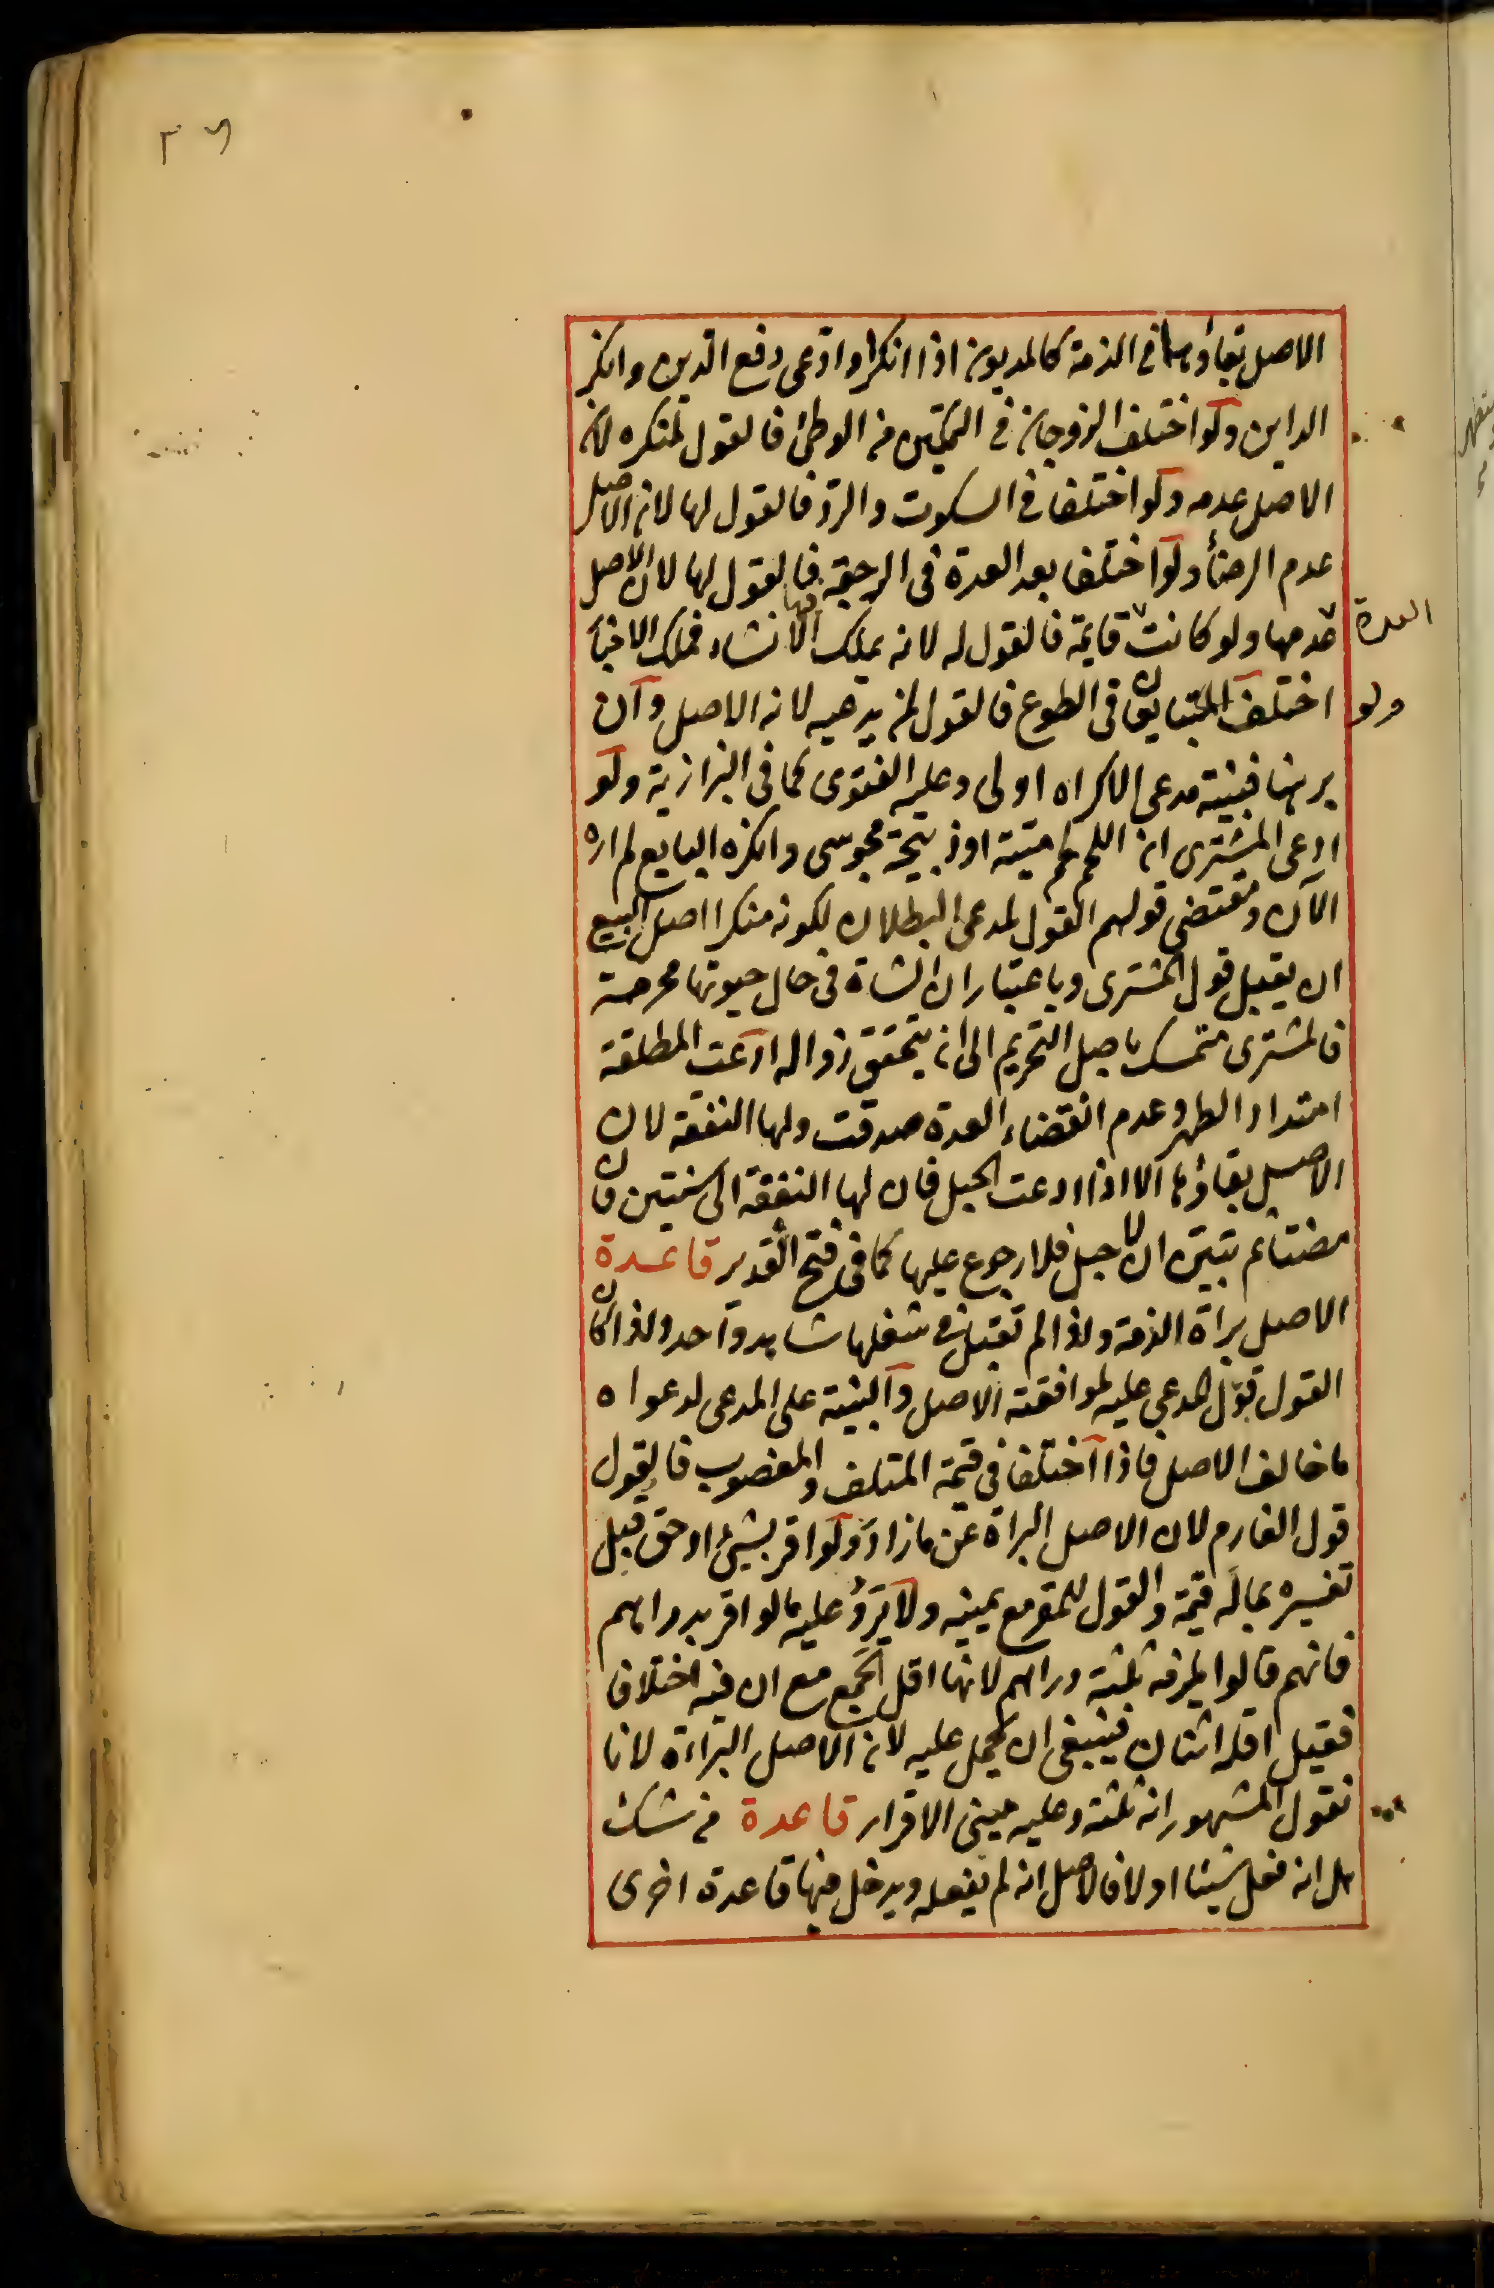 ٣٦
الاصل بقاؤها في الذمة كالمديون اذا انكر او ادعى دفع الدين وانكر
الداين ولو اختلف الزوجان في التمكين من الوطئ فالقول لمنكره لان
الاصل عدمه ولو اختلفا في السكوت والرد فالقول لها لان الاصل
عدم الرضأ ولو اختلفا بعد العدة في الرجعة فيها فالقول لها لان الاصل
عدمها ولو كانت قايمة فالقول له لانه يملك الانشاء فملك الاخبا
العدة
ولو
اختلف المتبايعان في الطوع فالقول لمن يدعيه لانه الاصل وان
برهنا فبينة مدعى الاكراه اولى وعليه الفتوى كما في البزازية ولو
ادعى المشترى ان اللحم لحم ميتة او ذبيحة مجوسى وانكره البايع لم اره
الآن ومقتضى قولهم القول لمدعى البطلان لكونه منكرا اصل البيع
ان يقبل قول المشترى وباعتبار ان الشاة في حال حيوتها محرمة
فالمشترى متمسك باصل التحريم الى ان يتحقق زواله ادعت المطلقة
امتداد الطهر وعدم انقضاء العدة صدقت ولها النفقة لان
الاصل بقاؤها الا اذا ادعت الحبل فان لها النفقة الى سنتين فان
مضتا ثم تبين ان لا حبل فلا رجوع عليها كما في فتح القدير قاعدة
الاصل براة الذمة ولذا لم تقبل في شغلها شاهد واحد ولذا كان
القول قول المدعى عليه لموافقته الاصل والبينة على المدعى لدعواه
ما خالف الاصل فاذا اختلفا في قيمة المتلف والمغصوب فالقول
قول الغارم لان الاصل البراة عن ما زاد ولو اقر بشيئ او حق قبل
تفسيره بماله قيمة والقول للمقر مع يمينه ولا يرد عليه ما لو اقر بدراهم
فانهم قالوا يلزمه ثلثة دراهم لانها اقل الجمع مع ان فيه اختلافا
فقيل اقله اثنان فينبغي ان يحمل عليه لان الاصل البراءة لانا
نقول المشهور انه ثلثة وعليه مبنى الاقرار قاعدة من شك
هل انه فعل شيئا او لا فالاصل انه لم يفعله ويدخل فيها قاعدة اخرى